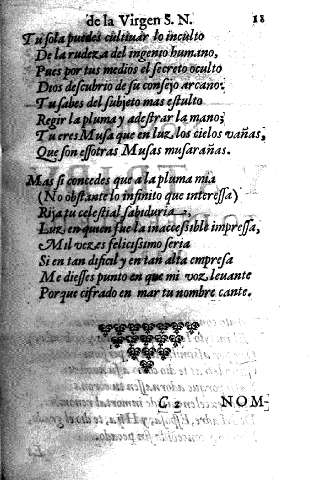 de la Virgen S. N. 18
Tu sola puedes cultiuar lo inculto
De la rudeza del ingenio humano,
Pues por tus medios el secreto oculto
Dios descubrio de su consejo arcano:
Tu sabes del subjeto mas estulto
Regir la pluma y adestrar la mano;
Tu eres Musa que en luz los cielos vañas,
Que son essotras Musas musarañas.
Mas si concedes que a la pluma mia
(No obstante lo infinito que interessa)
Rija tu celestial sabiduria,
Luz en quien fue la inaccessible impressa,
Mil vezes felicissimo seria
Si en tan dificil y en tan alta empresa
Me diesses punto en que mi voz leuante
Porque cifrado en mar tu nombre cante.
C 2 NOM-